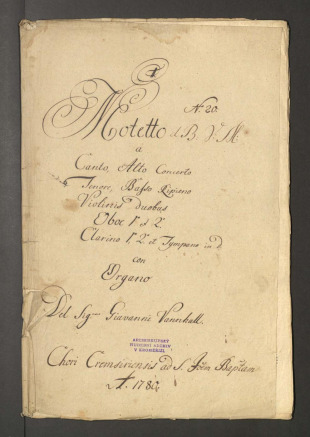 N. 20.
Motetto de B. V. M.
a
Canto, Alto Concerto
Tenore, Basso Ripieno
Violinis duobus
Oboe 1. et 2.
Clarino 1. 2. et Tympano in D
con
Organo
Del Sig. Giovanni Vannhall.
ARCIBISKUPSKÝ
HUDEBNÍ ARCHIV
V KROMĚŘÍŽI
Chori Cremsiriensis ad S. Joan Baptam
A. 1780.